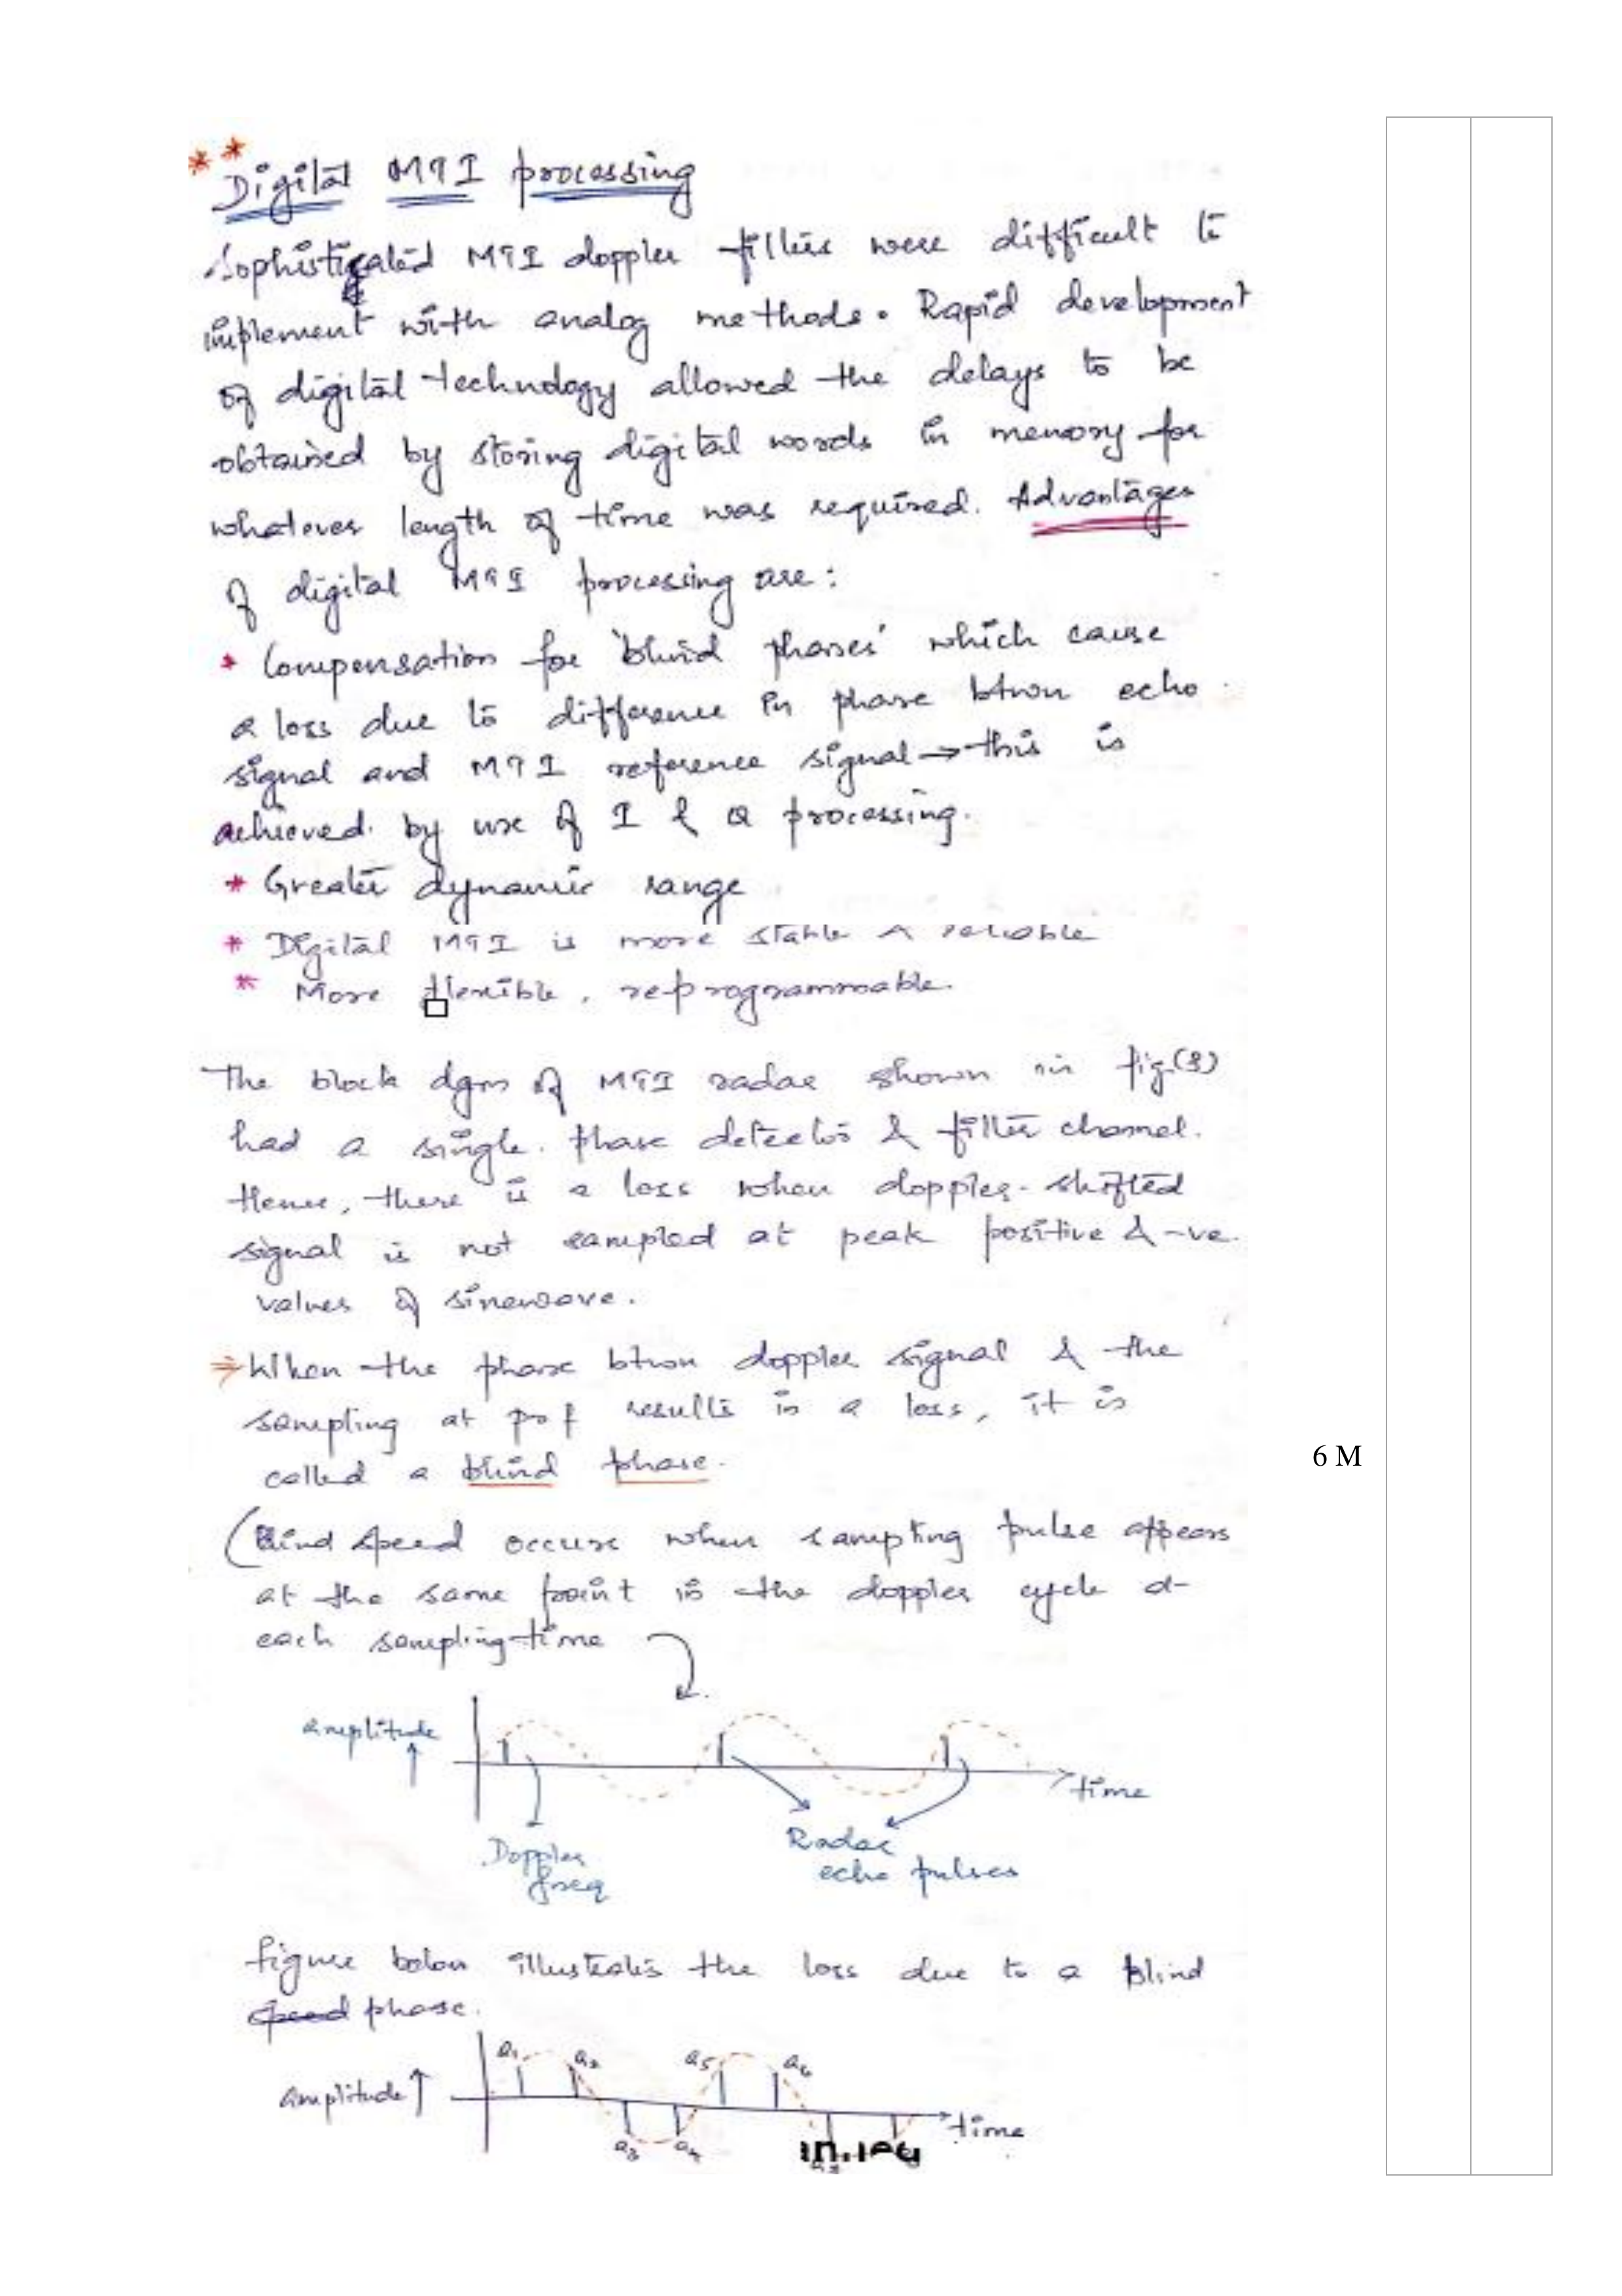 **
Digital MTI processing
Sophisticated MTI doppler filters were difficult to
implement with analog methods. Rapid development
of digital technology allowed the delays to be
obtained by storing digital words in memory for
whatever length of time was required. Advantages
of digital MTI processing are:
* Compensation for 'blind phases' which cause
a loss due to difference in phase btwn echo
signal and MTI reference signal → this is
achieved by use of I & Q processing.
* Greater dynamic range
* Digital MTI is more stable & reliable
* More flexible, reprogrammable.
The block dgm of MTI radar shown in fig(8)
had a single phase detector & filter channel.
Hence, there is a loss when doppler-shifted
signal is not sampled at peak positive & -ve
values of sinewave.
⇒ When the phase btwn doppler signal & the
sampling at prf results in a loss, it is
called a blind phase.
6 M
(Blind speed occurs when sampling pulse appears
at the same point in the doppler cycle at
each sampling time
amplitude
time
Doppler freq
Radar echo pulses
figure below illustrates the loss due to a blind
speed phase.
a1 a2 a5 a6
amplitude ↑
time
a3 a4